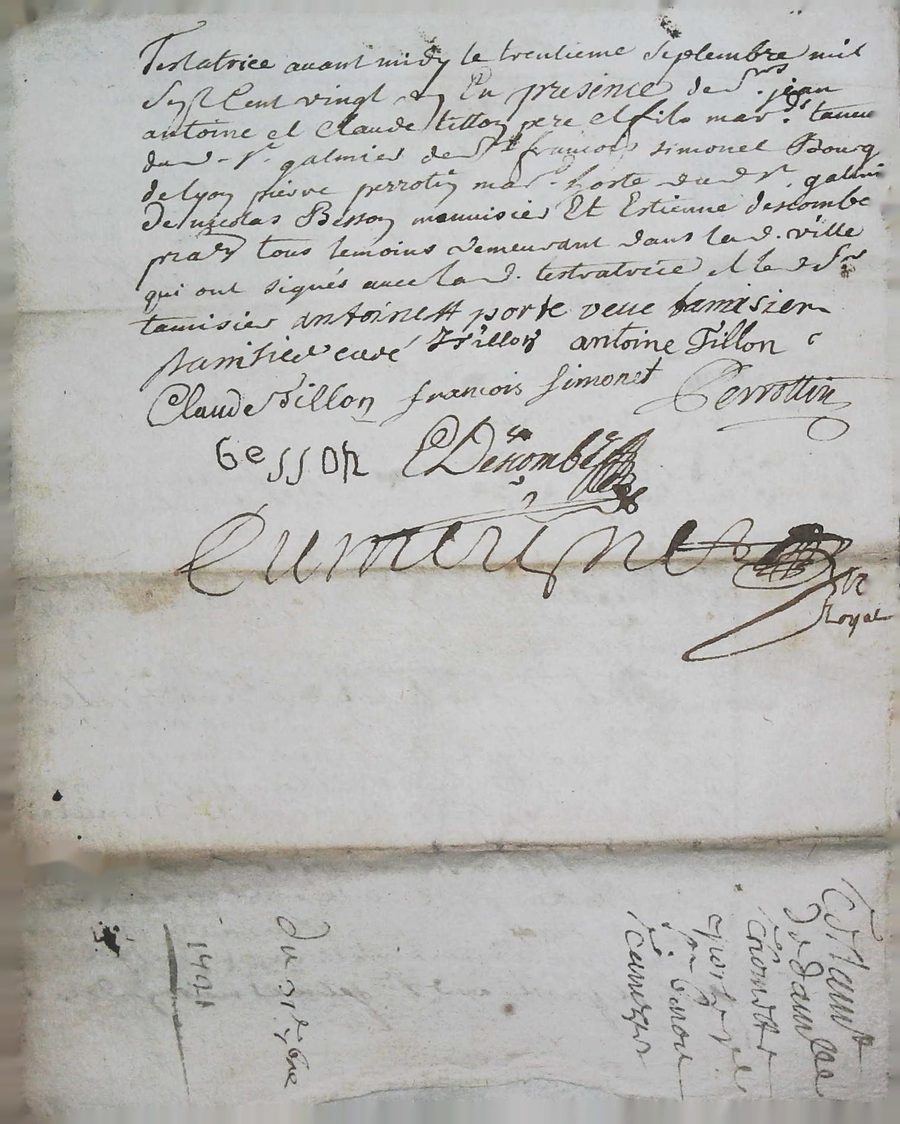 Testatrice auant midy le trentieme septembre mil
Sept Cent vingt En presence de Srs jean
antoine et Claude tillon pere et fils mards tanne
du d. St galmier de Sr francois simonet Bourg
de lyon pierre perrotin mard hoste du d St galmi
De nicolas Besson menuisier Et Estienne descombe
tous temoins demeurant dans lad. ville
qui ont signés auec lad. testratrice et le d Sr
tamisier antoinett porte veue tamisier
tamisier curé tillon antoine Tillon
Claude Tillon francois Simonet Perrottin
besson EDescombe
Royal
Testamt
de damlle
porte
tamizier
Du